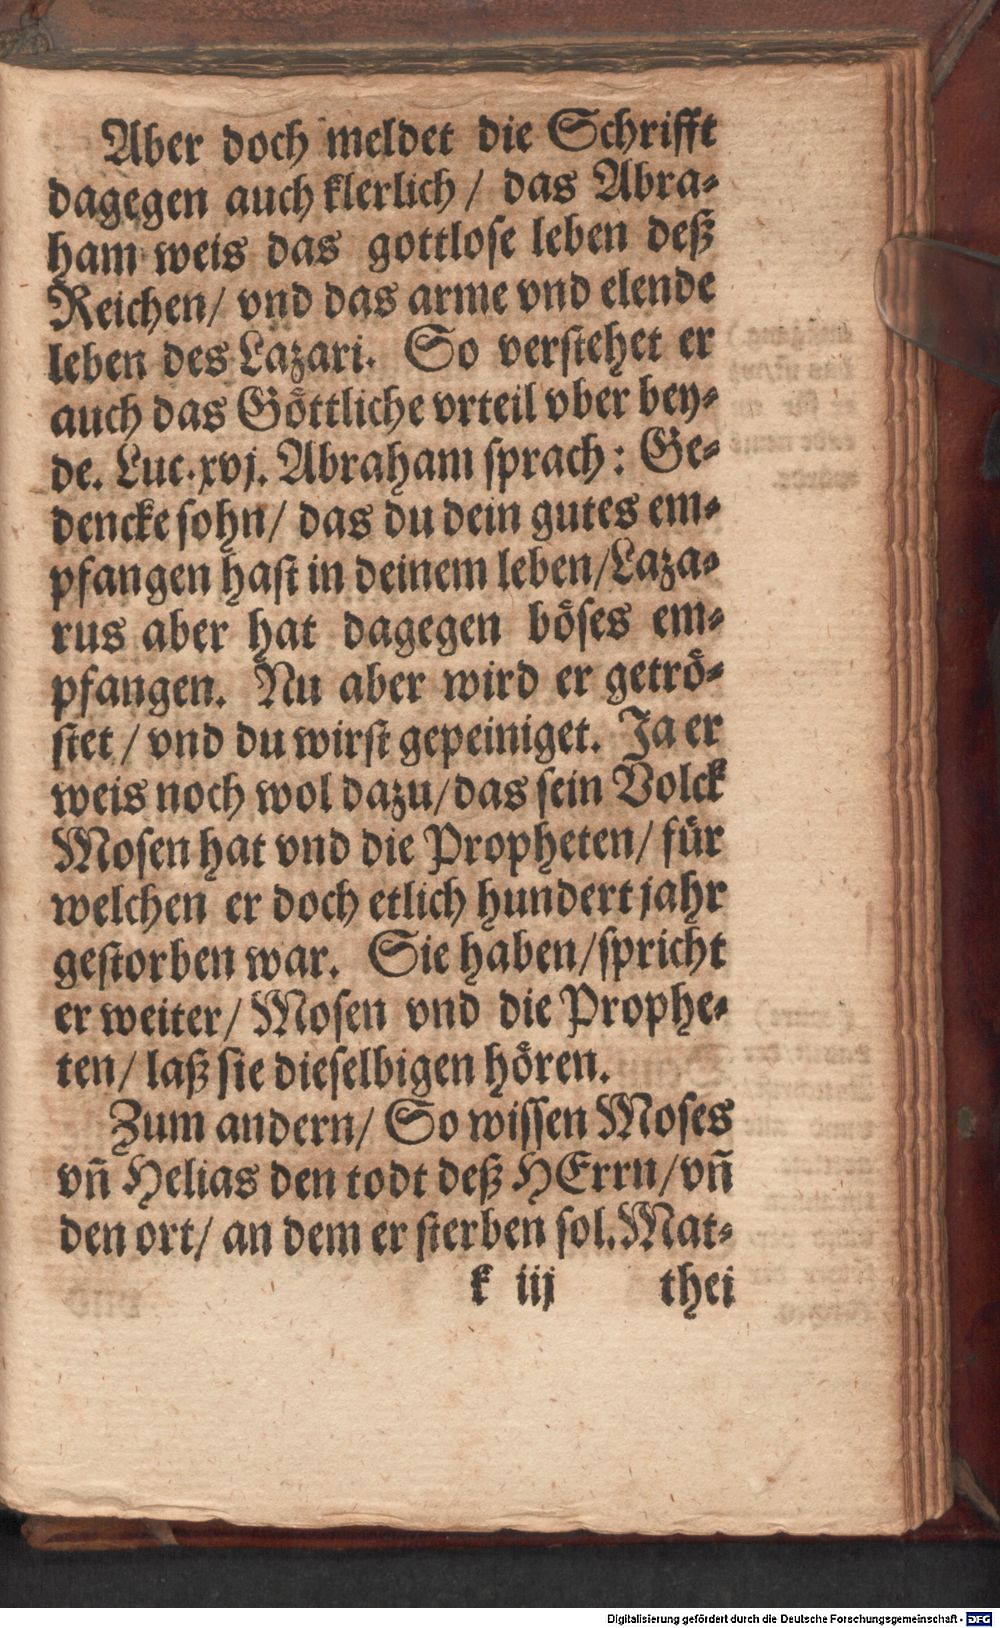 Aber doch meldet die Schrifft
dagegen auch klerlich / das Abra⸗
ham weis das gottlose leben deß
Reichen/ vnd das arme vnd elende
leben des Lazari. So verstehet er
auch das Göttliche vrteil vber bey⸗
de. Luc. xvj. Abraham sprach: Ge⸗
dencke sohn/ das du dein gutes em⸗
pfangen hast in deinem leben/Laza⸗
rus aber hat dagegen böses em⸗
pfangen. Nu aber wird er getrö⸗
stet / vnd du wirst gepeiniget. Ja er
weis noch wol dazu/das sein Volck
Mosen hat vnd die Propheten/ für
welchen er doch etlich hundert jahr
gestorben war. Sie haben/spricht
er weiter/ Mosen vnd die Prophe⸗
ten/ laß sie dieselbigen hören.
Zum andern/ So wissen Moses
vn̄ Helias den todt deß HErrn/vn̄
den ort/ an dem er sterben sol. Mat⸗
k iij thei
Digitalisierung gefördert durch die Deutsche Forschungsgemeinschaft - DFG